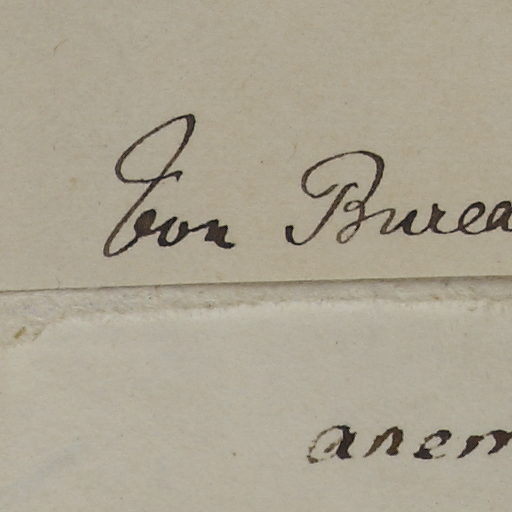 Von Burea
anem